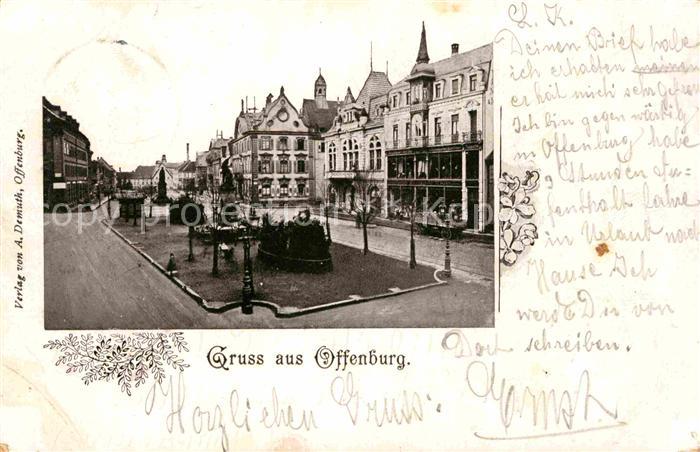 L. K.
Deinen Brief habe
ich erhalten meinen
er hat mich sehr gefreu
Ich bin gegen wärtig
in Offenburg habe
3 Stunden Auf-
enthalt fahre
in Urlaub nach
Hause Ich
werde Dir von
Dort schreiben.
Verlag von A. Demuth, Offenburg.
Gruss aus Offenburg.
Herzlichen Gruss.
Ernst